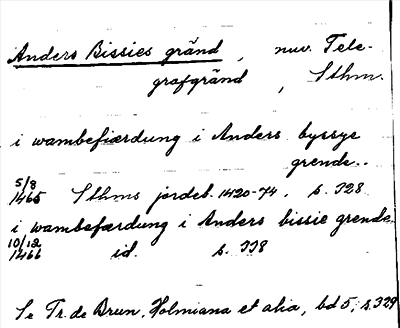 Anders Bissies gränd, nuv. Tele-
grafgränd, Sthm.
i wambefiærdung i Anders byssye
grende..
5/8
1465 Sthms jordeb. 1420-74. s. 328
i wambefærdung i Anders bissie grende.
10/12
1466 id. s. 338
Se Tr. de Brun, Holmiana et alia, bd 5, s. 329